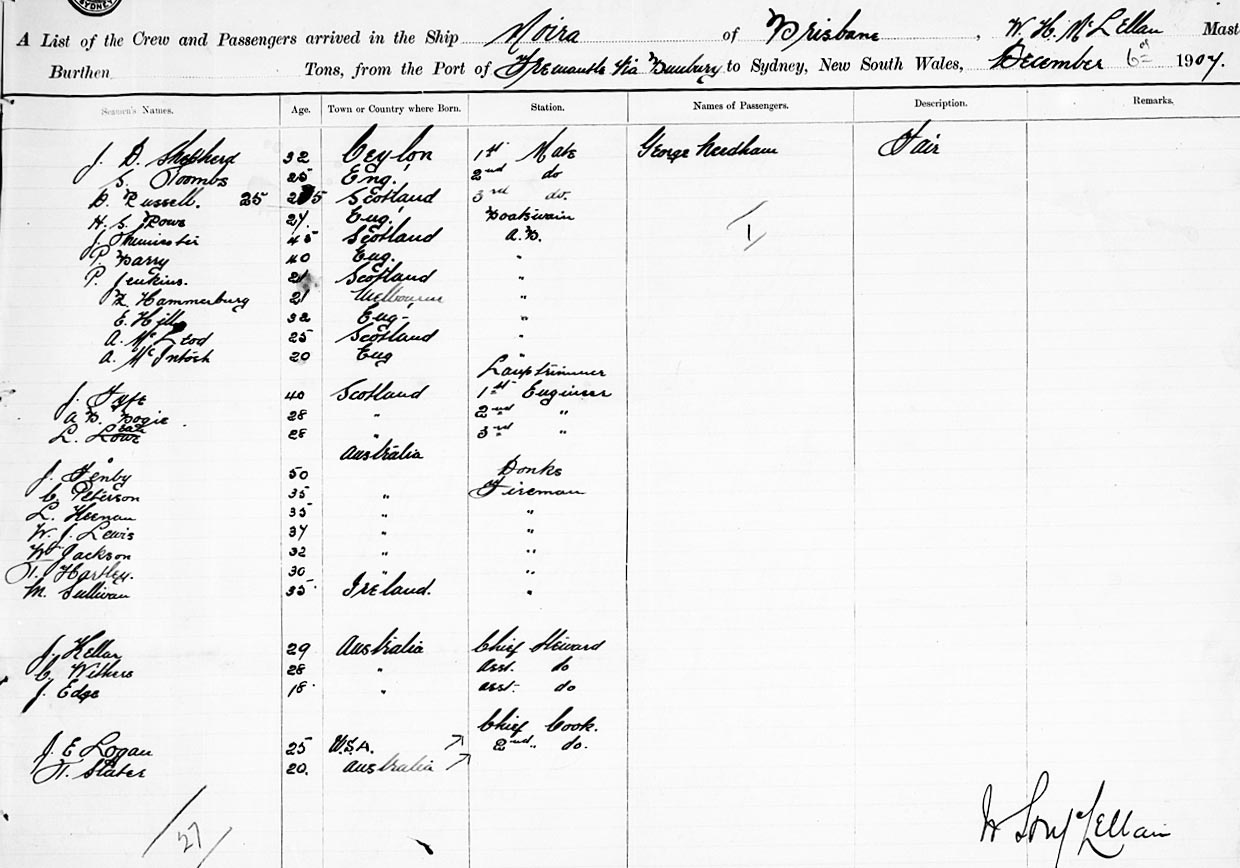 SYDNEY
A List of the Crew and Passengers arrived in the Ship Moira of Brisbane, W. H. McLellan Mast
Burthen Tons, from the Port of Fremantle Via Bunbury to Sydney, New South Wales, December 6th 1907.
Seamen's Names. Age. Town or Country where Born. Station. Names of Passengers. Description. Remarks.
J. D. Shepherd 32 Ceylon 1st Mate George Needham Fair
S. Toombs 25 Eng. 2nd do
D. Russell. 25 25 Scotland 3rd do.
H. S. Rowe 27. Eng. Boatswain
J. 45 Scotland A.B. 1
P. Barry 40 Eng. "
P. Jenkins. 21 Scotland "
Z. Hammerburg 21 Melbourne "
E. Hills 32 Eng- "
A. McLeod 25 Scotland "
A. McIntosh 20 Eng "
Lamptrimmer
J. Fyfe 40 Scotland 1st Engineer
A. B. Bogie 28 " 2nd "
L. 28 " 3rd "
Australia
J. Fenby 50 Donks
C. Peterson 35 " Fireman
L. Heenan 35 " "
W. J. Lewis 37 " "
Wm Jackson 32 " "
T. Hartley. 30 " "
M. Sullivan 35 Ireland. "
J. Kellar 29 Australia Chief Steward
C. Withers 28 " asst. do
J. Edge 18 " asst. do
Chief Cook.
J. E. Logan 25 U.S.A. 2nd do.
T. Slater 20. Australia
27
McLellan